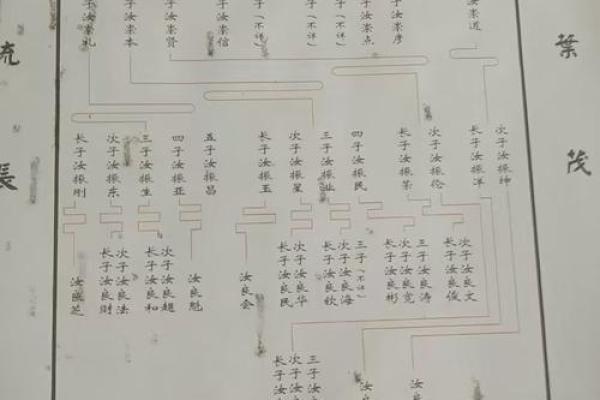 葉茂
流長
子汝崇礼
子汝崇本
子汝崇贤
子汝崇信
子(不详)
子(不详)
子(不详)
子汝崇点
子汝崇彦
汝崇道
长子汝振刚
次子汝振东
三子汝振生
四子汝振亚
五子汝振昌
长子汝振玉
次子汝振星
三子汝振业
四子汝振民
长子汝振荣
次子汝振伦
长子汝振洋
次子汝振坤
汝盛芝
长子汝良财
次子汝良法
长子汝良和
次子汝良超
汝良魁
汝良会
长子汝良民
次子汝良华
长子汝良钦
次子汝良海
三子(不详)
长子汝良彬
次子汝良宽
三子汝良涛
长子汝良俊
次子汝良文
长子汝良
次子汝良
三子汝良
汝
汝